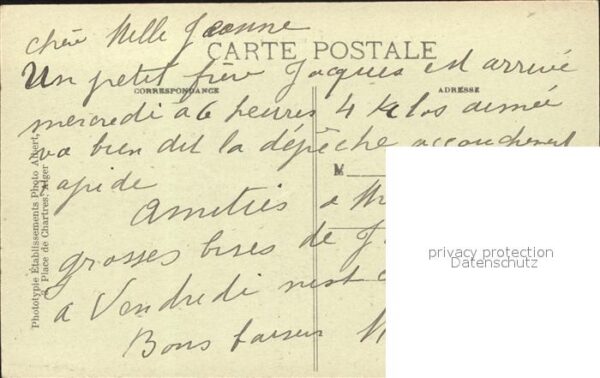 chère Melle Jeanne
CARTE POSTALE
Un petit frère Jacques est arrivé
CORRESPONDANCE
ADRESSE
mercredi à 6 heures 4 kilos aimée
va bien dit la dépêche accouchement
rapide
M
Amitiés a
grosses bises de J
a Vendredi n'est
Bons baisers
Phototypie Établissements Photo Albert,
Place de Chartres, Alger
privacy protection
Datenschutz